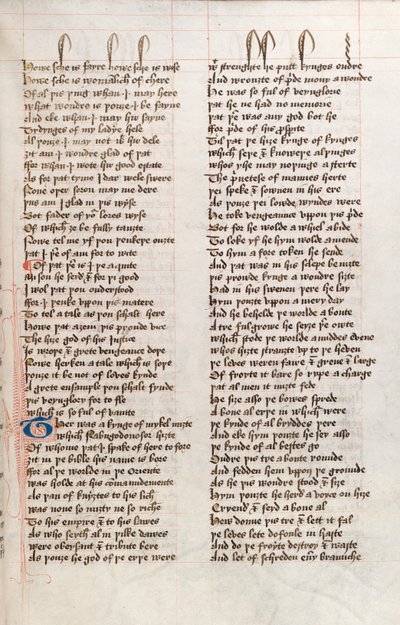 Howe sche is fayre howe sche is wise
Howe sche is womanlich of chere
Of al þis þing whan I may here
What wondre is þouȝe I be fayne
And eke whan I may hir sayne
Tydynges of my ladye hele
Al þouȝe I may not wt hir dele
Ȝit am I wondre glad of þat
ffor whan I wote hir good estate
As for þat tyme I dar wele swere
None oþer sorow may me dere
Þus am I glad in þis wyse
Bot fader of ȝor lores wyse
Of which ȝe be fully tauȝte
Nowe tel me yf ȝou þenkeþe ouȝte
Þat I þer of am for to wite
Of þat þer is I þe aquite
My son he seid & for þi good
I wol þat þou vnderstood
ffor I þenke vpon þis matere
To tel a tale as þou schalt here
Howe þat aȝein þis proude vice
The hiȝe god of his iustice
Is wroþe & grete vengeance doþe
Nowe herken a tale which is soþe
Þouȝe it be not of loves kynde
A grete ensample þou schalt fynde
Þis veynglory for to fle
Which is so ful of vanite
Ther was a kynge of mykel miȝte
Which Nabugodonosor hiȝte
Of whome þat I spake of here to fore
Ȝit in þe bible his name is bore
ffor al þe worlde in þe Oriente
Was holde at his comaundemente
As þan of knyȝtes to his lich
Was none so miȝty ne so riche
To his empire & to his lawes
As who seyth al in þilke dawes
Were obeysant & tribute bere
As þouȝe he god of þe erþe were
Wt strenghte he putt kynges ondre
And wrouȝte of pride mony a wondre
He was so ful of veynglorie
Þat he ne had no memorie
Þat þer was any god bot he
ffor pride of his prosperite
Til þat þe hiȝe kynge of kynges
Which seþe & knoweþ al þynges
Whos yhe may noþynge a sterte
The privetese of mannes herte
Þei speke & sownen in his ere
As þouȝe þei lowde wyndes were
He toke vengeaunce vppon þis pride
Bot for he wolde a while abide
To loke yf he hym wolde amende
To hym a fore token he sende
And þat was in his sleepe be niȝte
Þis prowde kynge a wondre siȝte
Had in his sweuen þere he lay
Hym þouȝte vppon a mery day
And he behelde þe worlde a bonte
A tre fulgrowe he seyȝe þer owte
Which stode þe worlde a middes evene
Whos hiȝte strauȝte vp to þe heven
Þe leves weren fayre & grene & large
Of froyte it bare so rype a charge
Þat al men it miȝte fede
He siȝe also þe bowes sprede
A bone al erþe in which were
Þe kynde of al bryddes þere
And eke hym þouȝte he sey also
Þe kynde of al bestes go
Ondre þis tre a bonte rounde
And fedden hem vppon þe grounde
As he þis wondre stode & siȝe
Hym þouȝte he herd a voyce on hiȝe
Cryend & seyd a bone al
Hew doune þis tre & lett it fal
Þe leves lete defoule in haste
And do þe froyte destroy & waste
And let of schreden euery braunche